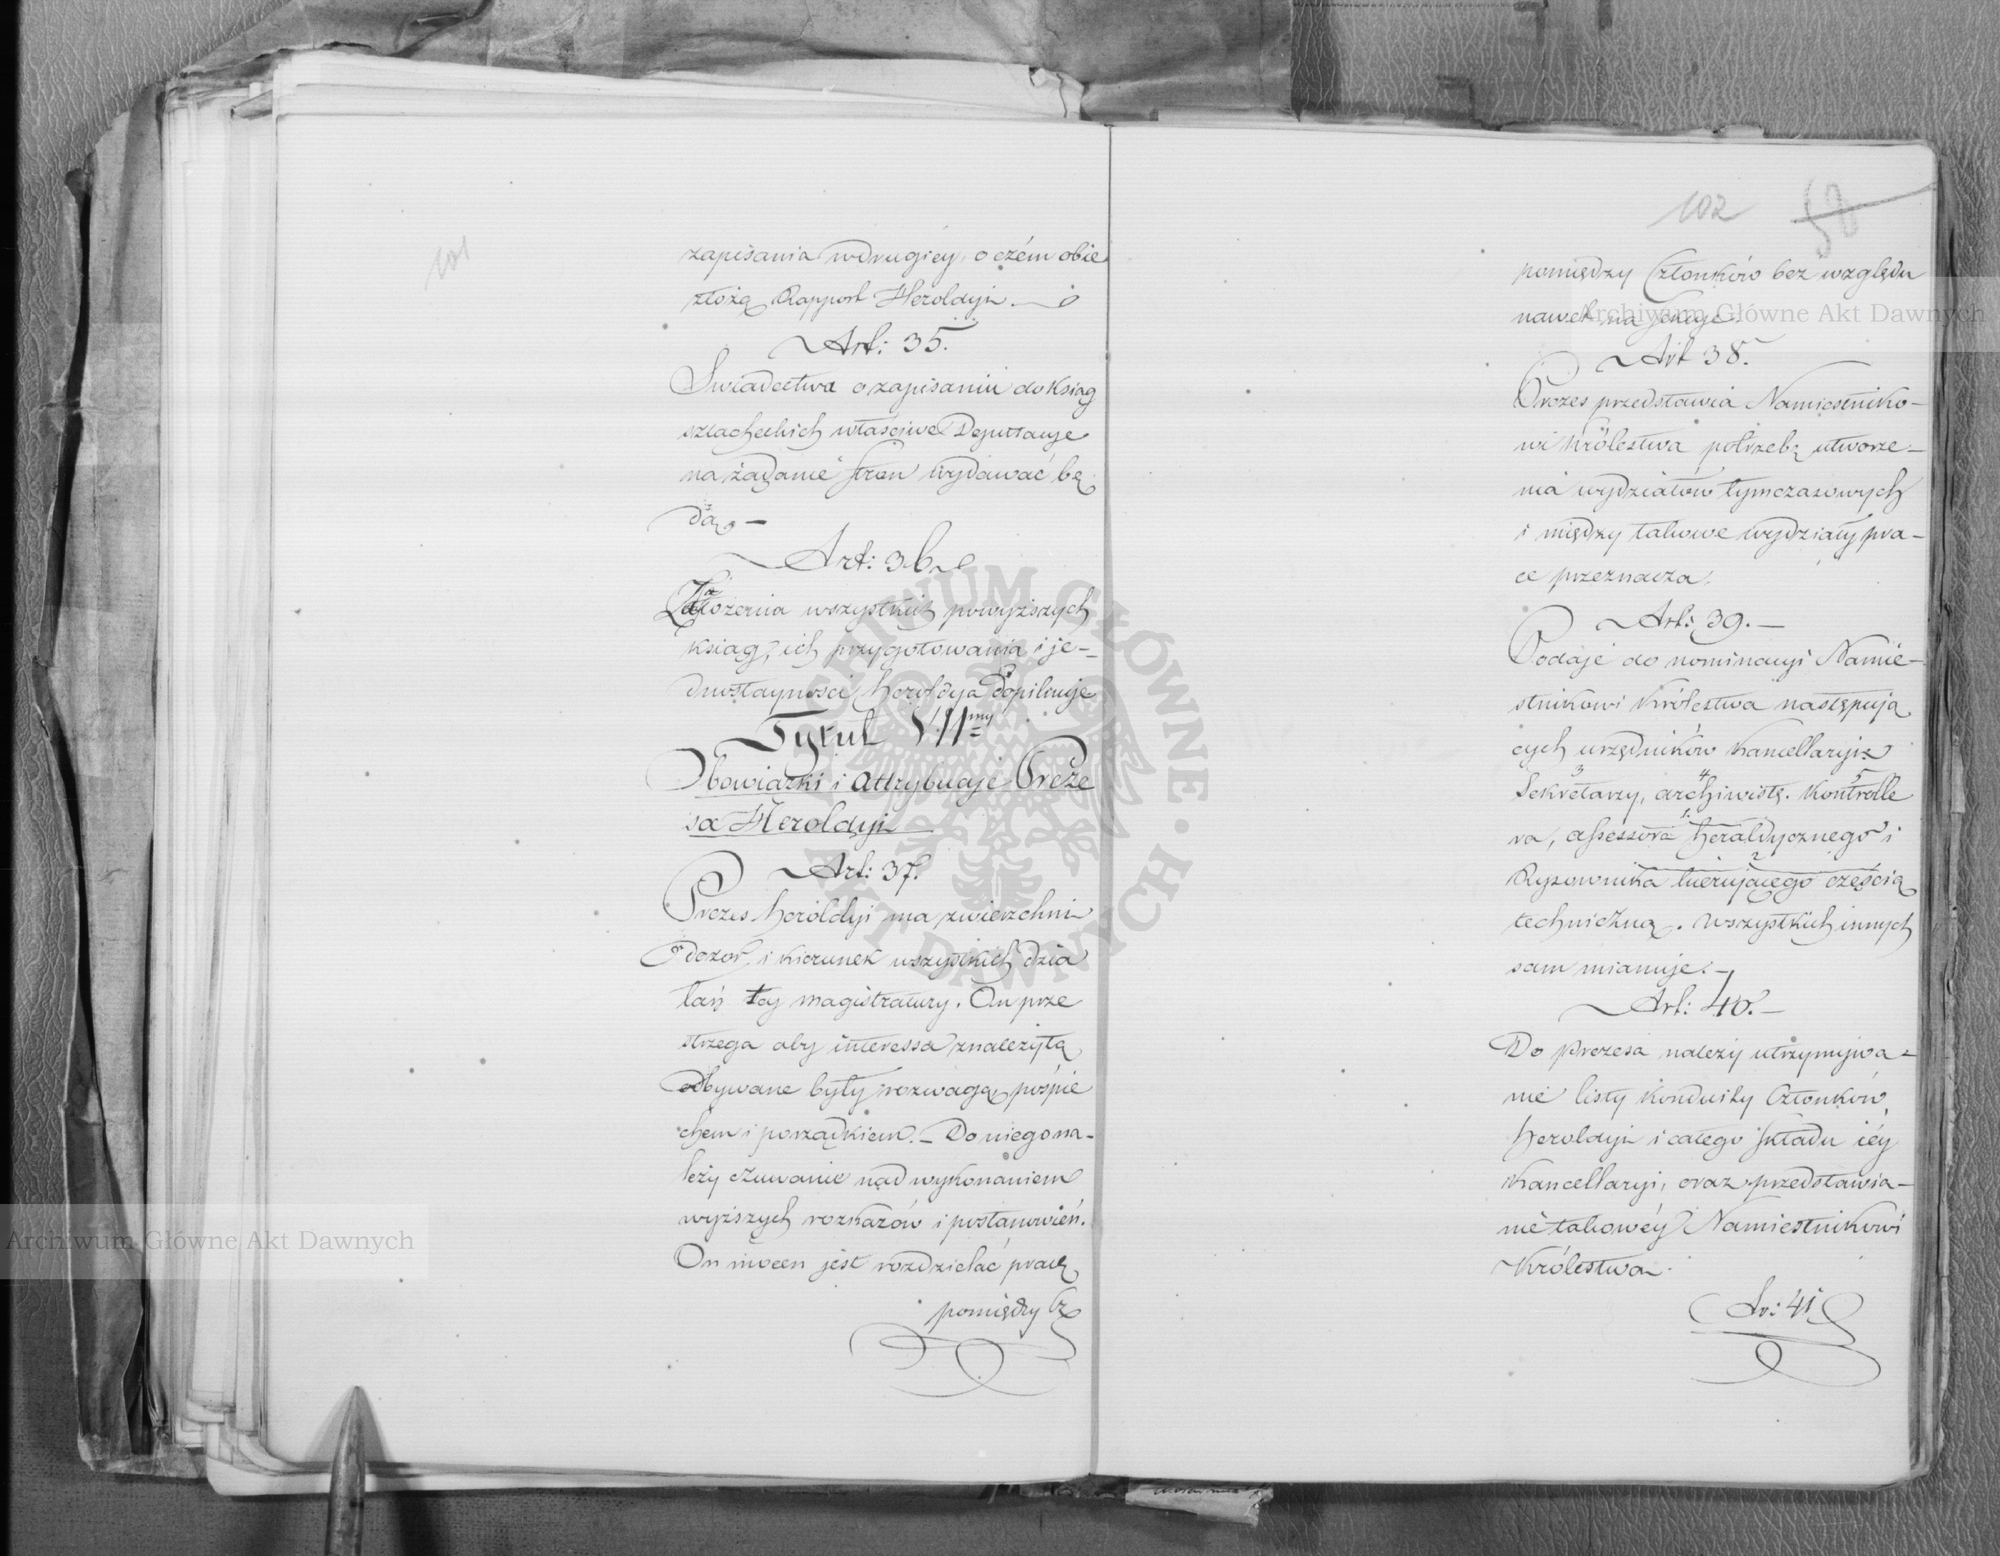 101
zapisania w drugiéy, o czém obie
złożą Rapport Heroldyi.
Art: 35.
Swiadectwa o zapisaniu do Ksiąg
szlacheckich właściwe Deputacye
na żądanie stron wydawać bę
dą. —
Art: 36
Założenia wszystkich powyższych
ksiąg, ich przygotowania i je-
dnostayności Heroldya dopilnuje
Tytuł VIImy
Obowiązki i attrybucaje Preze
sa Heroldyi
Art: 37.
Prezes Heroldyi ma zwierzchni
dozor i kierunek wszystkich dzia
łań tey magistratury. On prze
strzega aby interessa z należytą
odbywane były rozwagą, pośpie
chem i porządkiem. — Do niego na-
leży czuwanie nad wykonaniem
wyższych rozkazów i postanowień.
On mocen jest rozdzielać pracę
pomiędzy Cz
102 58
pomiędzy Członków bez względu
nawet na Sekcye.
Art 38.
Prezes przedstawia Namiestniko-
wi Królestwa potrzebę utworze-
nia wydziałów tymczasowych
i między takowe wydziały pra-
ce przeznacza.
Art: 39. —
Podaje do nominacyi Namie-
stnikowi Królestwa następują
cych urzędników Kancellaryi:
3 4 5
Sekretarzy, archiwistę. Kontrolle
1.
ra, assessora heraldycznego i
2
Rysownika kierującego częścią
techniczną. Wszystkich innych
sam mianuje. —
Art: 40. —
Do Prezesa należy utrzymywa-
nie listy konduity Członków
Heroldyi i całego składu iéy
Kancellaryi, oraz przedstawia-
nie takowéy Namiestnikowi
Królestwa.
Ar: 41
Archiwum Główne Akt Dawnych
Archiwum Główne Akt Dawnych
ARCHIWUM GŁÓWNE AKT DAWNYCH